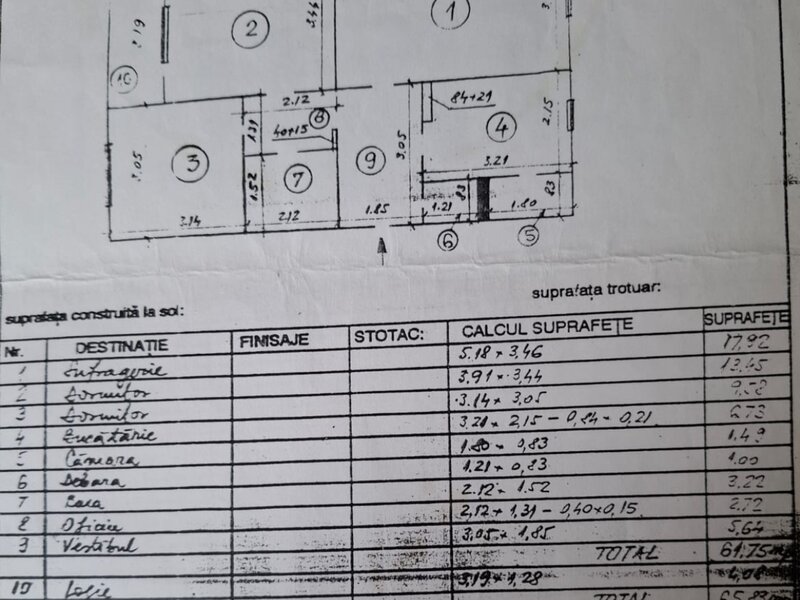 2.19
2
3.44
1
10
2.12
8
84+21
4
2.15
40+15
1.31
3.05
3
7
9
3.05
3.21
1.52
83
83
3.14
2.12
1.85
1.21
1.80
6
5
suprafața trotuar:
suprafața construită la sol:
Nr. DESTINAȚIE FINISAJE STOTAC: CALCUL SUPRAFEȚE SUPRAFEȚE
1 Sufragerie 5.18 × 3,46 17,92
2 Dormitor 3.91 × 3,44 13,45
3 Dormitor 3.14 × 3,05 9,58
4 Bucătărie 3.21 × 2,15 - 0,84 × 0,21 6,73
5 Cămara 1.80 × 0,83 1.49
6 Debara 1.21 × 0,83 1.00
7 Baia 2.12 × 1.52 3,22
8 Oficiu 2,12 × 1,31 - 0,40×0,15 2,72
9 Vestibul 3,05 × 1,85 5,64
TOTAL 61,75
10 Logie 3,19 × 1,28 4,08
TOTAL 65,83